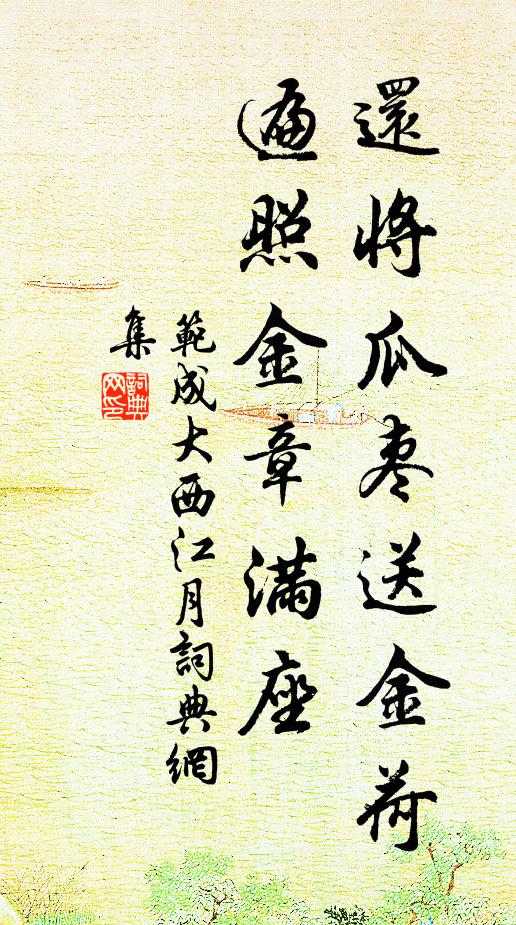 還將瓜枣送金荷
遍照金章滿座
範成大西江月詞典網
集
詞典
网印